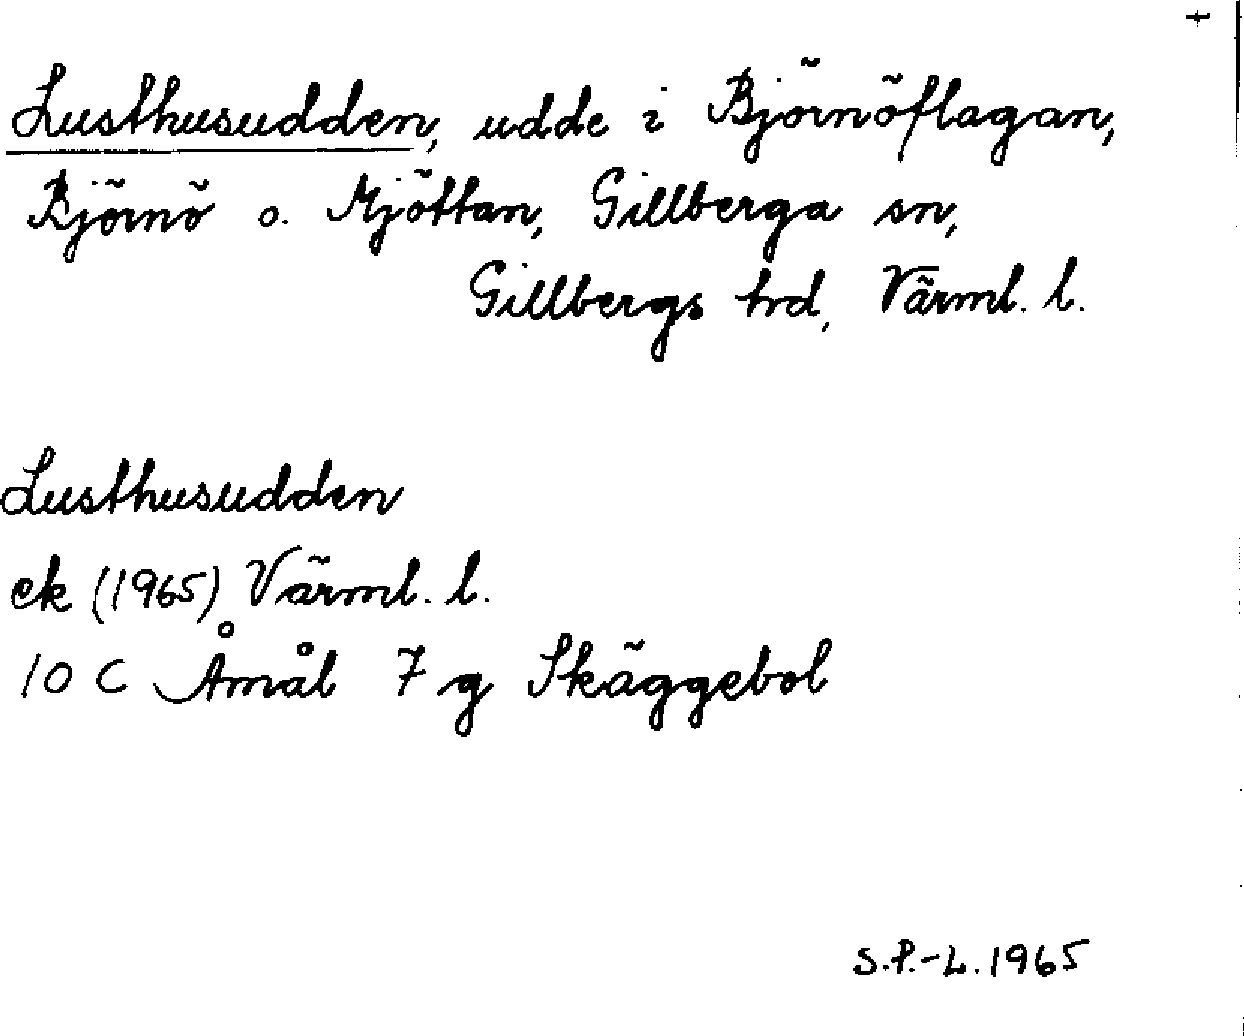 Lusthusudden, udde i Björnöflagan,
Björnö o. Mjöttan, Gillberga sn,
Gillbergs hrd, Värml. l.
Lusthusudden
ek (1965) Värml. l.
10 C Åmål 7 g Skäggebol
S.P.-L. 1965